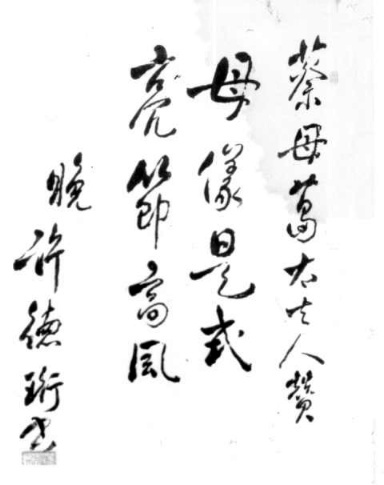 蔡母葛太夫人贊
母儀是式
亮節高風
晚許德珩书